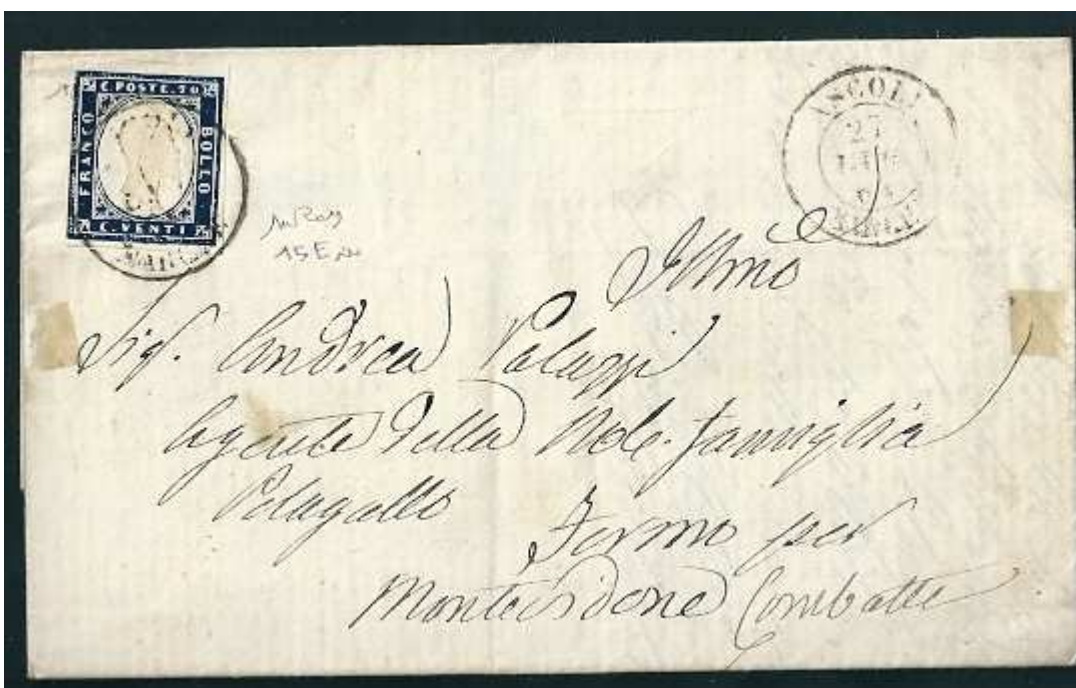 C. POSTE. 20
FRANCO
BOLLO
C. VENTI
ASCOLI
15E
Illmo
Sig. Andrea Palazzi
Agente della Nole. famiglia
Pelagallo
Fermo per
Montevidone Combatte